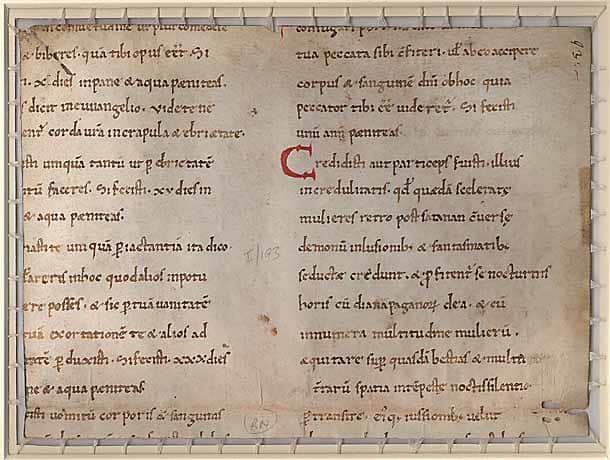 ut plus comede
& biberes. quā tibi opus eēt. Si
ti. x dies in pane & aqua pęniteas.
s dicit in euuangelio. Videte ne
ent̄ corda ur̄a in crapula & ebrietate.
isti umquā tantū ut p̄ ebrietatē
itū faceres. Si fecisti. xv dies in
& aqua pęniteas.
iasti te umquā p̄ iactantiā ita dico
rareris in hoc quod alios in potu
ere posses. & sic p̄ tuā uanitatē
tuā exortationē te & alios ad
tatē p̄duxisti. Si fecisti. xxx dies
ne & aqua pęniteas
isti uomitū corporis & sanguinis
tua peccata sibi cōfiteri. uł ab eo accipere
corpus & sanguinē dn̄i. ob hoc quia
peccator tibi eē uideret̄. Si fecisti
unū annū pęniteas.
Credidisti aut particeps fuisti. illius
incredulitatis. qđ quędā sceleratę
mulieres retro post satanan cōuersę
demonū inlusionib; & fantasmatib;
seductę credunt. & p̄fitent̄ se nocturnis
horis cū diana paganoꝝ dea. & cū
innumera multitudine mulierū.
equitare sup̄ quasdā bestias & multa
t̄rarū spatia intēpestę noctis silentio
p̄transire. eiꝰq; iussionib; uelut
I/193
RN